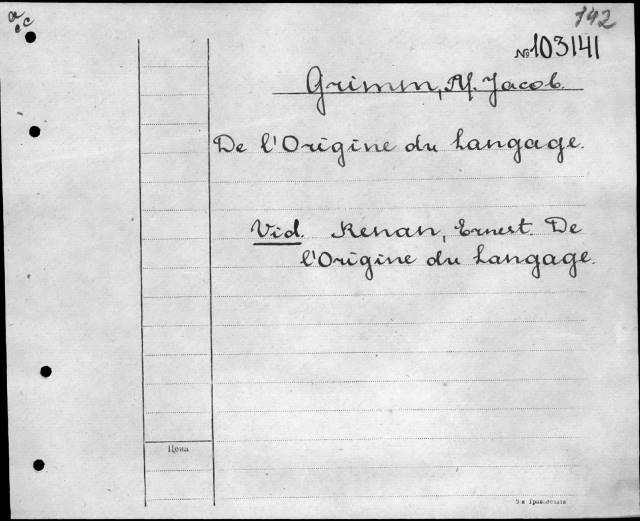 142
№ 103141
Grimm, M. Jacob.
De l'Origine du Langage.
Vid. Renan, Ernest. De
l'Origine du Langage.
Цена